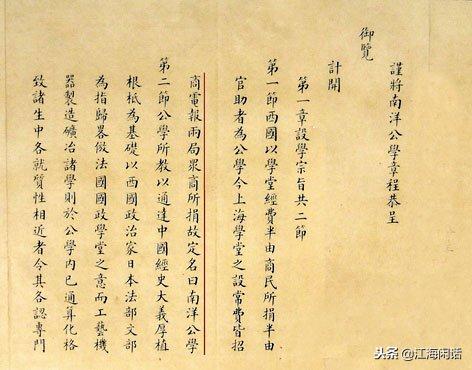 謹將南洋公學章程恭呈
御覽
計開
第一章設學宗旨共二節
第一節西國以學堂經費半由商民所捐半由
官助者為公學今上海學堂之設常費皆招
商電報兩局眾商所捐故定名曰南洋公學
第二節公學所教以通達中國經史大義厚植
根柢為基礎以西國政治家日本法部文部
為指歸畧倣法國國政學堂之意而工藝機
器製造礦冶諸學則於公學內已通算化格
致諸生中各就質性相近者令其各認專門
头条 @江海闲话